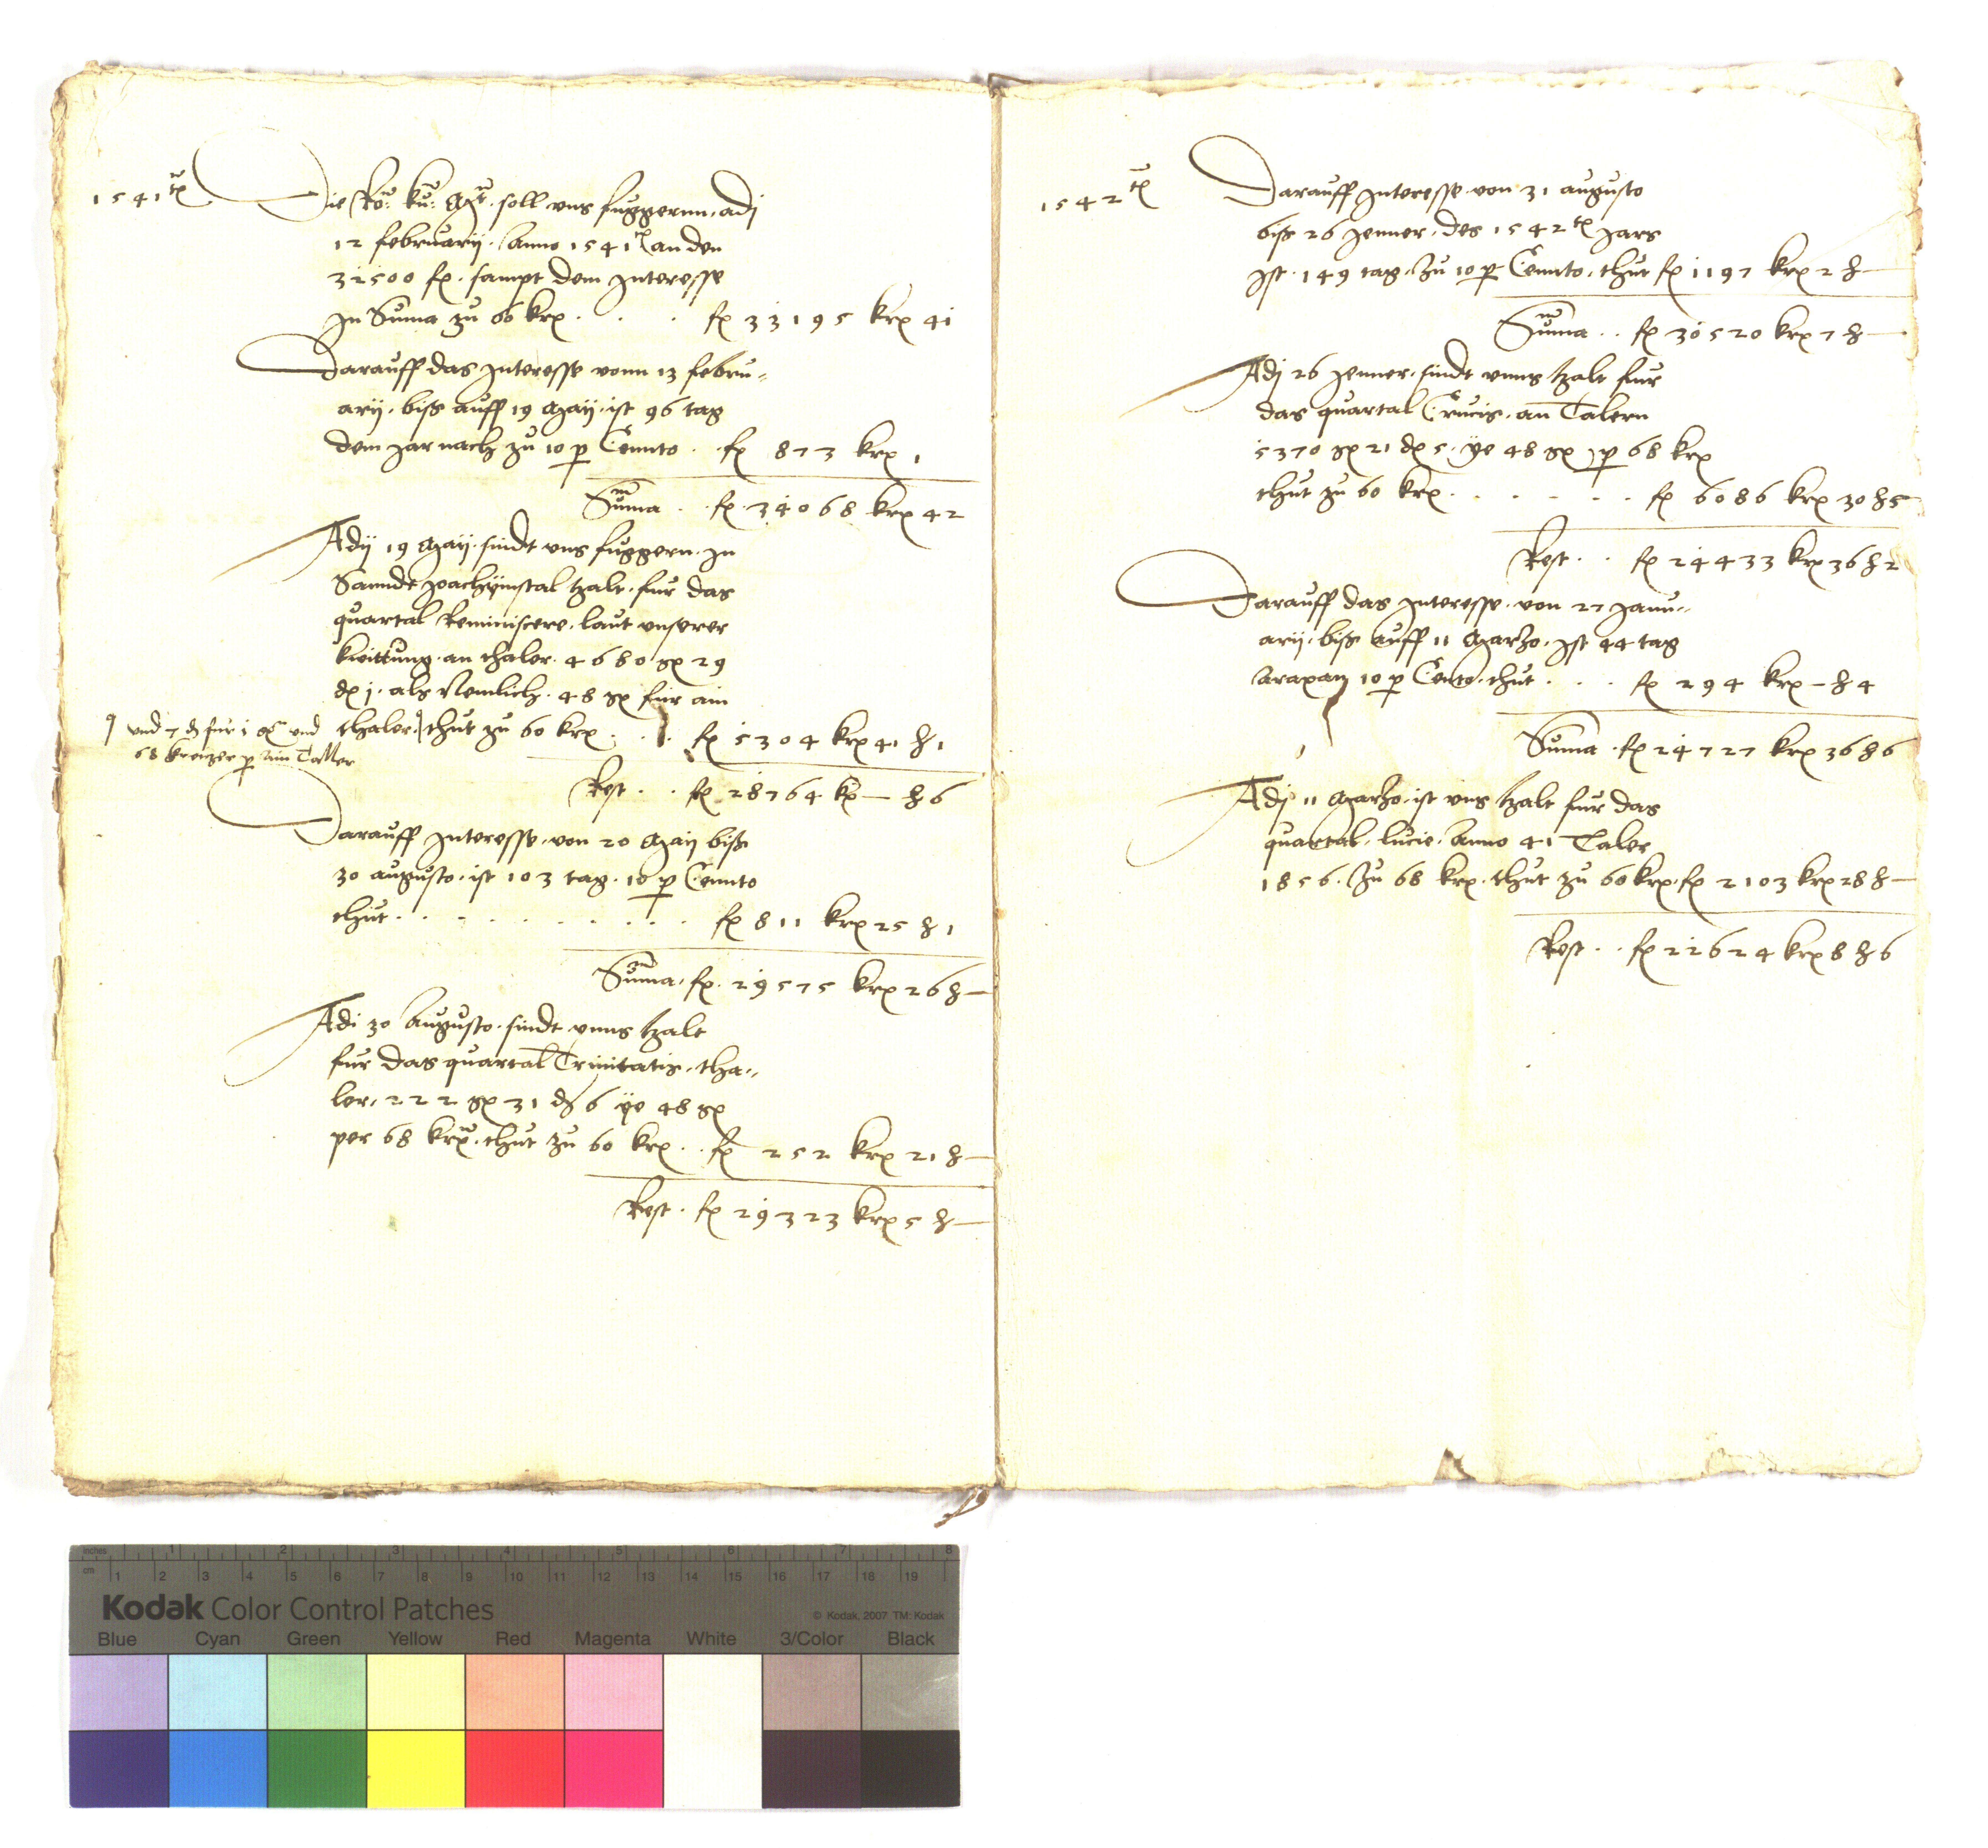 1541ten
Die Rö: kü: Mt. soll vns fuggernn, adj
12 february. Anno 1541ten an den
32500 fl. sampt dem Interesse
In Suma zu 60 krx . . . fl 33195 krx 41
Darauff das Interesse vonn 13 febru=
arij. biss auff 19 Maij. ist 96 tag
dem jar nach zu 10 p Cennto . . fl 873 krx 1
Suma . . fl. 34068 krx 42
Adij 19 Maij. sindt vns fuggern. In
Sanndt Joachimstal tzalt. fur das
quartal Reminiscere. laut vnserer
kwittung. an thaler. 4680 gx 29
dx j. als Nemlich. 48 gx fur ain
thaler. thut zu 60 krx . . . fl 5304 krx 41 h 1
vnd 7 d fur 1 gx vnd
68 kreitzer p ain Taller
Rest . . fl 28764 kx — h 6
Darauff Interesse. von 20 Maij biss
30 augusto. ist 103 tag. 10 p Cennto
thut . . . . . . . . . . fl 811 krx 25 h 1
Suma. fl. 29575 krx 26 h —
Adi 30 Augusto. sindt vnns tzalt
fur das quartal Trinitatis. tha=
ler. 222 gx 31 d 6 ye 48 gx
per 68 krx. thut zu 60 krx . . fl 252 krx 21 h —
Rest . fl 29323 krx 5 h —
1542ten
Darauff Interesse von 31 augusto
biss 26 Jenner. des 1542ten Jars
Ist. 149 tag. Zu 10 p Cennto. thut fl 1197 krx 2 h —
Suma . . fl 30520 krx 7 h —
Adj 26 Jenner. sindt vnns tzalt fur
das quartal Crucis. an Talern
5370 gx 21 dx 5. ye 48 gx p 68 krx
thut zu 60 krx . . . . . . fl 6086 krx 30 h 5
Rest . . fl 24433 krx 36 h 2
Darauff das Interesse. von 27 Janu=
arij. biss auff 11 Marzo. Ist 44 tag
10 p Cento. thut . . . fl 294 krx — h 4
Suma . fl 24727 krx 36 h 6
Adj 11 Marzo. ist vns tzalt fur das
quartal. lucie. Anno 41 Taler
1856. Zu 68 krx. thut zu 60 krx. fl 2103 krx 28 h —
Rest . . fl 22624 krx 8 h 6
inches 1 2 3 4 5 6 7 8
cm 1 2 3 4 5 6 7 8 9 10 11 12 13 14 15 16 17 18 19
Kodak Color Control Patches
© Kodak, 2007 TM: Kodak
Blue Cyan Green Yellow Red Magenta White 3/Color Black